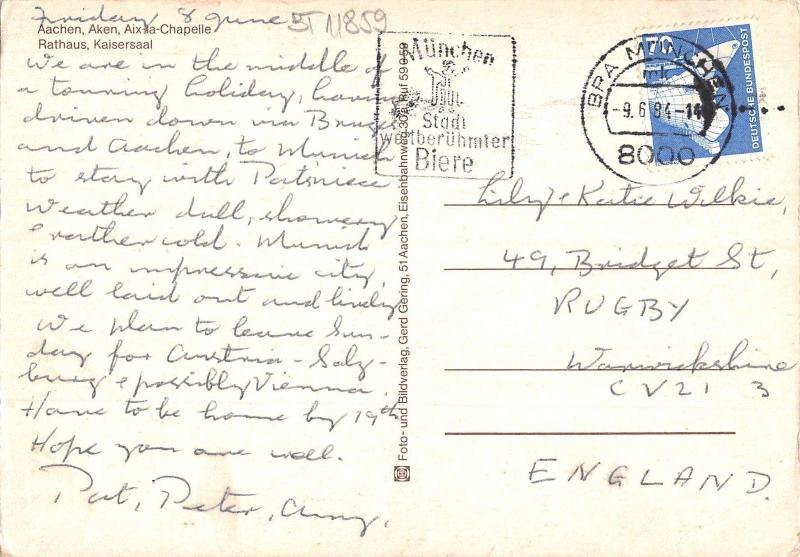 Friday 8 June
ST 11859
Aachen, Aken, Aix-la-Chapelle
Rathaus, Kaisersaal
We are in the middle of
a touring holiday, having
driven down via Bruges
and Aachen, to Munich
to stay with Pat's niece
Weather dull, showery
& rather cold. Munich
is an impressive city,
well laid out and lively
We plan to leave Sun-
day for Austria - Salz-
burg & possibly Vienna.
Have to be home by 19th
Hope you are well.
Pat, Peter, Amy.
Foto- und Bildverlag, Gerd Gering, 51 Aachen, Eisenbahnweg 30a, Ruf 59 0 59
München
Stadt
weltberühmter
Biere
BPA MÜNCHEN
-9.6.84-14
8000
DEUTSCHE BUNDESPOST
Lily & Katie Wilkie,
49, Bridget St,
RUGBY
Warwickshire
CV21 3
ENGLAND.